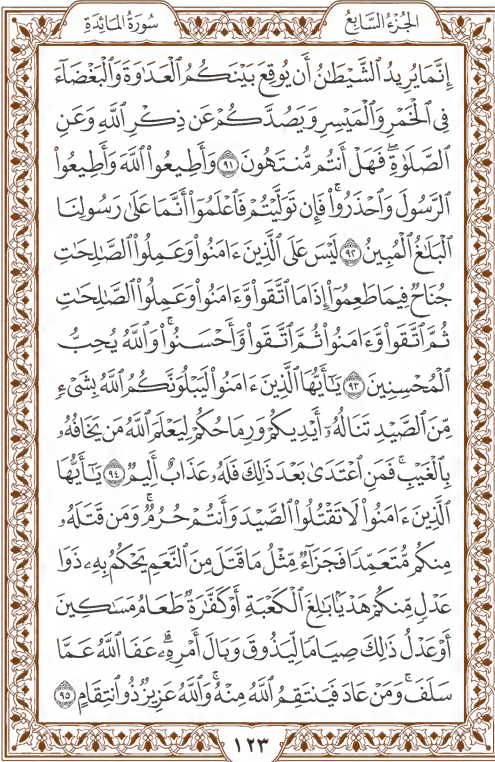 الجزء السابع
سورة المائدة
إِنَّمَا يُرِيدُ الشَّيْطَٰنُ أَن يُوقِعَ بَيْنَكُمُ الْعَدَٰوَةَ وَالْبَغْضَآءَ
فِى الْخَمْرِ وَالْمَيْسِرِ وَيَصُدَّكُمْ عَن ذِكْرِ اللَّهِ وَعَنِ
الصَّلَوٰةِ ۖ فَهَلْ أَنتُم مُّنتَهُونَ ٩١ وَأَطِيعُوا۟ اللَّهَ وَأَطِيعُوا۟
الرَّسُولَ وَاحْذَرُوا۟ ۚ فَإِن تَوَلَّيْتُمْ فَاعْلَمُوٓا۟ أَنَّمَا عَلَىٰ رَسُولِنَا
الْبَلَٰغُ الْمُبِينُ ٩٢ لَيْسَ عَلَى الَّذِينَ ءَامَنُوا۟ وَعَمِلُوا۟ الصَّٰلِحَٰتِ
جُنَاحٌ فِيمَا طَعِمُوٓا۟ إِذَا مَا اتَّقَوا۟ وَّءَامَنُوا۟ وَعَمِلُوا۟ الصَّٰلِحَٰتِ
ثُمَّ اتَّقَوا۟ وَّءَامَنُوا۟ ثُمَّ اتَّقَوا۟ وَّأَحْسَنُوا۟ ۗ وَاللَّهُ يُحِبُّ
الْمُحْسِنِينَ ٩٣ يَٰٓأَيُّهَا الَّذِينَ ءَامَنُوا۟ لَيَبْلُوَنَّكُمُ اللَّهُ بِشَىْءٍ
مِّنَ الصَّيْدِ تَنَالُهُۥٓ أَيْدِيكُمْ وَرِمَاحُكُمْ لِيَعْلَمَ اللَّهُ مَن يَخَافُهُۥ
بِالْغَيْبِ ۚ فَمَنِ اعْتَدَىٰ بَعْدَ ذَٰلِكَ فَلَهُۥ عَذَابٌ أَلِيمٌ ٩٤ يَٰٓأَيُّهَا
الَّذِينَ ءَامَنُوا۟ لَا تَقْتُلُوا۟ الصَّيْدَ وَأَنتُمْ حُرُمٌ ۚ وَمَن قَتَلَهُۥ
مِنكُم مُّتَعَمِّدًا فَجَزَآءٌ مِّثْلُ مَا قَتَلَ مِنَ النَّعَمِ يَحْكُمُ بِهِۦ ذَوَا
عَدْلٍ مِّنكُمْ هَدْيًۢا بَٰلِغَ الْكَعْبَةِ أَوْ كَفَّٰرَةٌ طَعَامُ مَسَٰكِينَ
أَوْ عَدْلُ ذَٰلِكَ صِيَامًا لِّيَذُوقَ وَبَالَ أَمْرِهِۦ ۗ عَفَا اللَّهُ عَمَّا
سَلَفَ ۚ وَمَنْ عَادَ فَيَنتَقِمُ اللَّهُ مِنْهُ ۗ وَاللَّهُ عَزِيزٌ ذُو انتِقَامٍ ٩٥
١٢٣